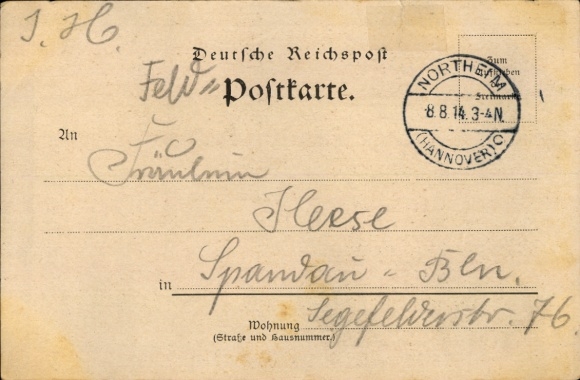 S. H.
Deutsche Reichspost
Feld=
Postkarte.
NORTHEIM
8.8.14. 3-4N.
(HANNOVER)
Zum
Aufkleben
Freimarke
An
Fräulein
Herse
in Spandau - Bln.
Segefelderstr. 76
Wohnung
(Straße und Hausnummer)